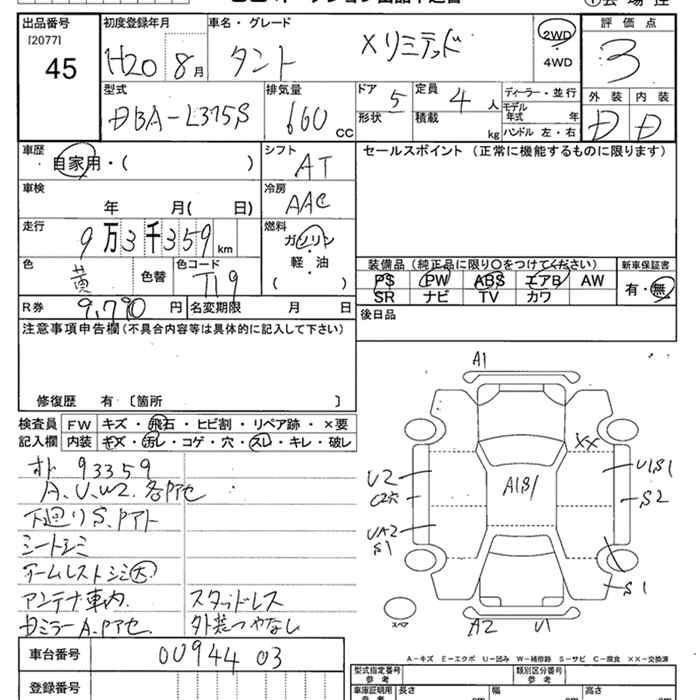 出品番号 初度登録年月 車名・グレード 評価点
[2077]
45 H20 8月 タント Xリミテッド 2WD・4WD 3
型式 排気量 ドア 5 定員 4 人 ディーラー・並行 外装 内装
DBA-L375S 660 CC 形状 積載 kg モデル年式 年 D D
ハンドル 左・右
車歴 自家用・( ) シフト AT セールスポイント (正常に機能するものに限ります)
車検 年 月( 日) 冷房 AAC
走行 9万3千359 km 燃料 ガソリン・軽・油 ( )
色 黄 色替 色コード T19 装備品 (純正品に限り○をつけてください) 新車保証書
PS PW ABS エアB AW 有・無
SR ナビ TV カワ
R券 9,790 円 名変期限 月 日 後日品
注意事項申告欄 (不具合内容等は具体的に記入して下さい)
修復歴 有 〔箇所 〕
検査員 FW キズ・飛石・ヒビ割・リペア跡・×要
記入欄 内装 キズ・汚レ・コゲ・穴・スレ・キレ・破レ
オド 93359
A、U、W2、各Pアセ
下廻りS、Pアト
シートシミ
アームレストシミ大
アンテナ車内、 スタッドレス
Dミラー A、Pアセ、 外装つやなし
車台番号 0094403
登録番号
A1
XX
U2 A1S1 U1S1
C2穴 S2
UA2
S1
S1
スペア A2 U1
A-キズ E-エクボ U-凹み W-補修跡 S-サビ C-腐食 XX-交換済
型式指定番号 類別区分番号
車庫証明用 長さ 幅 高さ
参考 cm cm cm